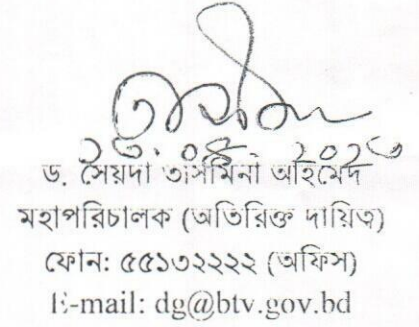 ড. সৈয়দা তাসমিনা আহমেদ
মহাপরিচালক (অতিরিক্ত দায়িত্ব)
ফোন: ৫৫১৩২২২২ (অফিস)
E-mail: dg@btv.gov.bd